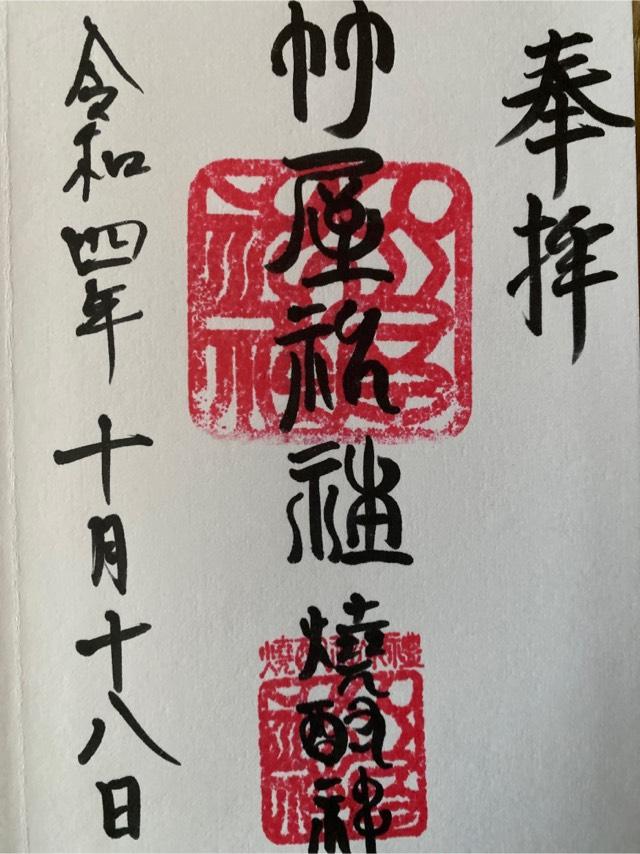 奉拝
竹屋神社
燒酎神
令和四年十月十八日